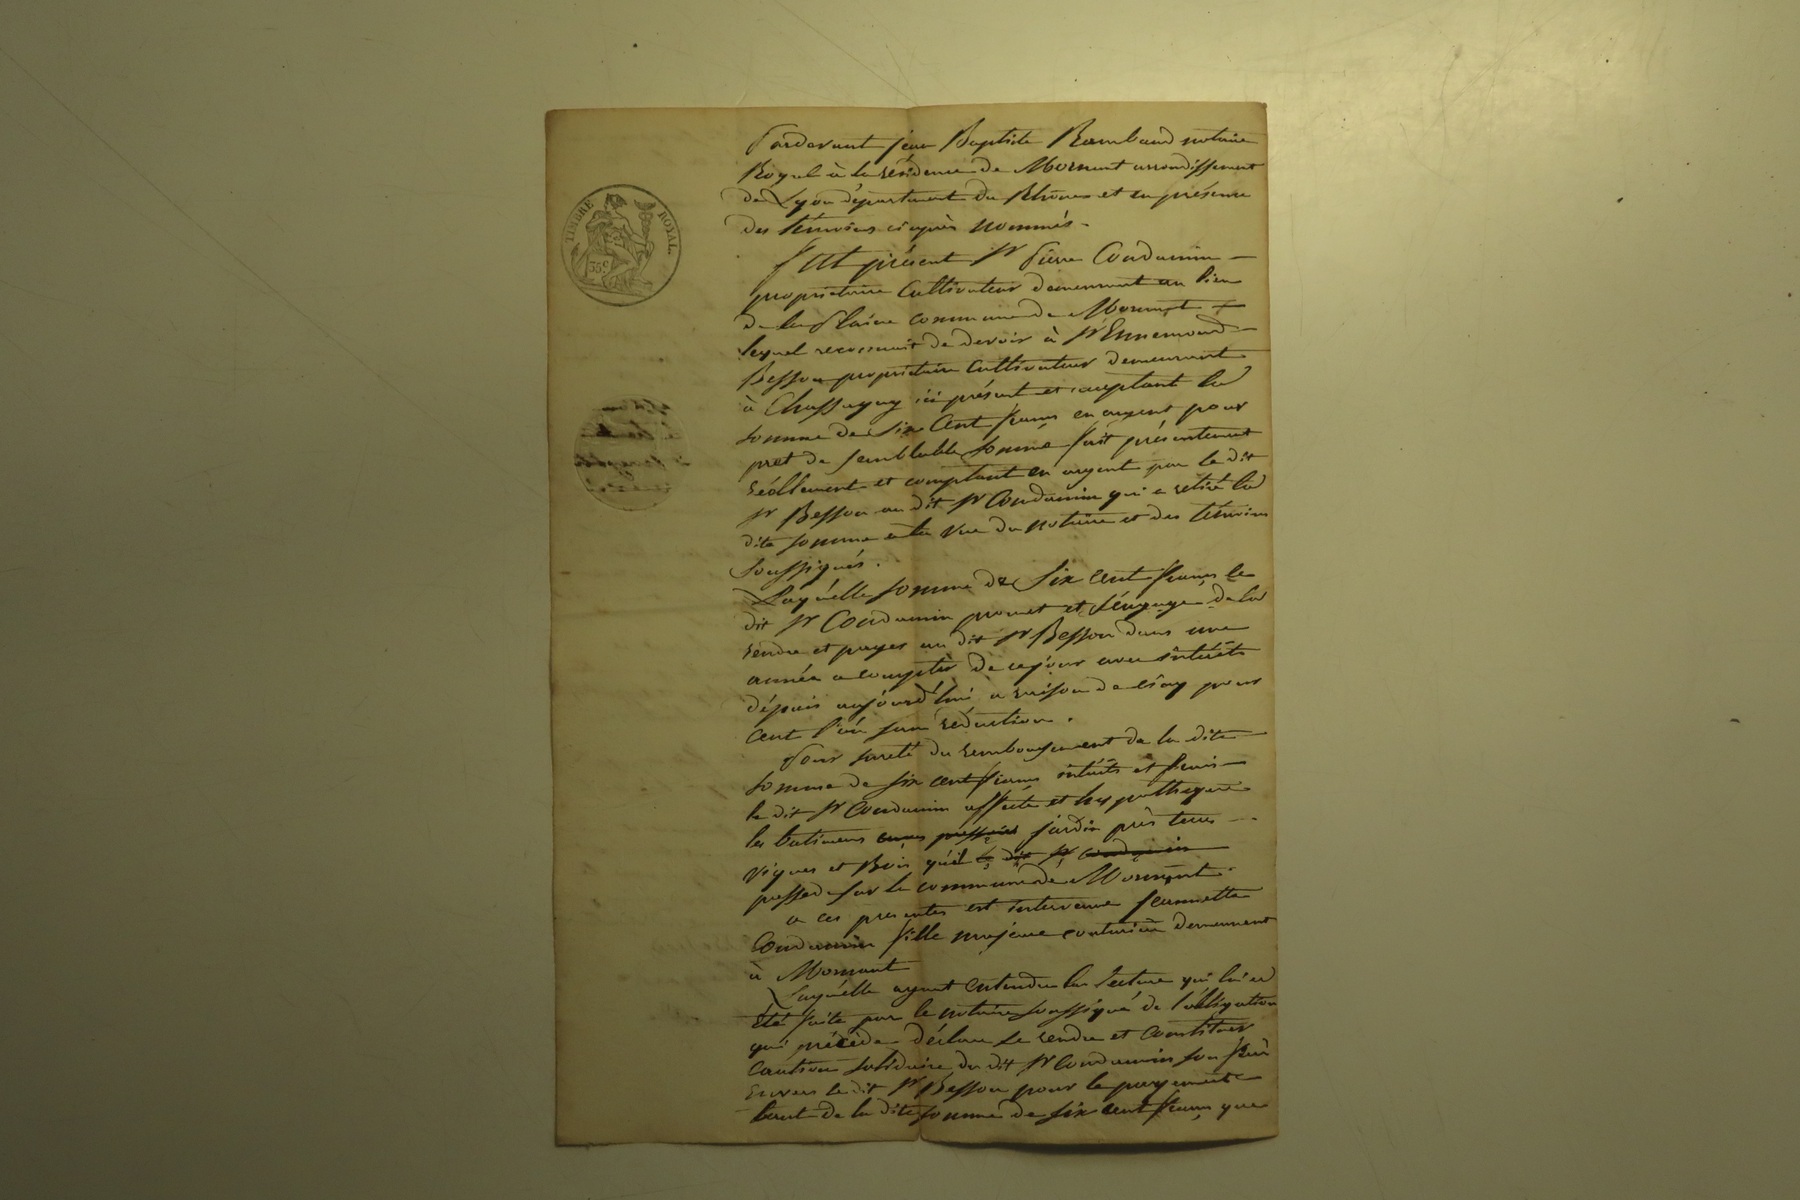 TIMBRE ROYAL
35 c
Pardevant jean Baptiste Rambaud notaire
Royal à la résidence de Mornant arrondissement
de Lyon département du Rhône et en présence
des témoins ci après nommés.
fut présent Sr Pierre Condamin
propriétaire Cultivateur demeurant au lieu
de la Plaine commune de Mornant
lequel reconnait de devoir à Sr Ennemond
Besson propriétaire Cultivateur demeurant
à Chassagny ici présent et acceptant la
somme de Six Cent francs en argent pour
pret de semblable somme fait présentement
réellement et comptant en argent par le dit
Sr Besson au dit Sr Condamin qui a retiré la
dite somme a la vue du notaire et des témoins
soussignés.
Laquelle somme de Six cent francs le
dit Sr Condamin promet et s'engage de la
rendre et payer au dit Sr Besson dans une
année a compter de ce jour avec intérêts
dépuis aujourd'hui a raison de cinq pour
cent l'an sans réduction.
Pour sureté du remboursement de la dite
somme de six cent francs intérêts et frais
le dit Sr Condamin affecte et hypothèque
les batimens jardin près terres
vignes et Bois qu'il le dit Sr Condamin
possede sur la commune de Mornant.
a ces presentes est intervenue Jeannette
Condamin fille majeure couturière demeurant
à Mornant
Laquelle ayant entendu la lecture qui lui a
été faite par le notaire soussigné de l'obligation
qui précède déclare se rendre et constituer
caution solidaire du dit Sr Condamin son frère
envers le dit Sr Besson pour le payement
tant de la dite somme de six cent francs que